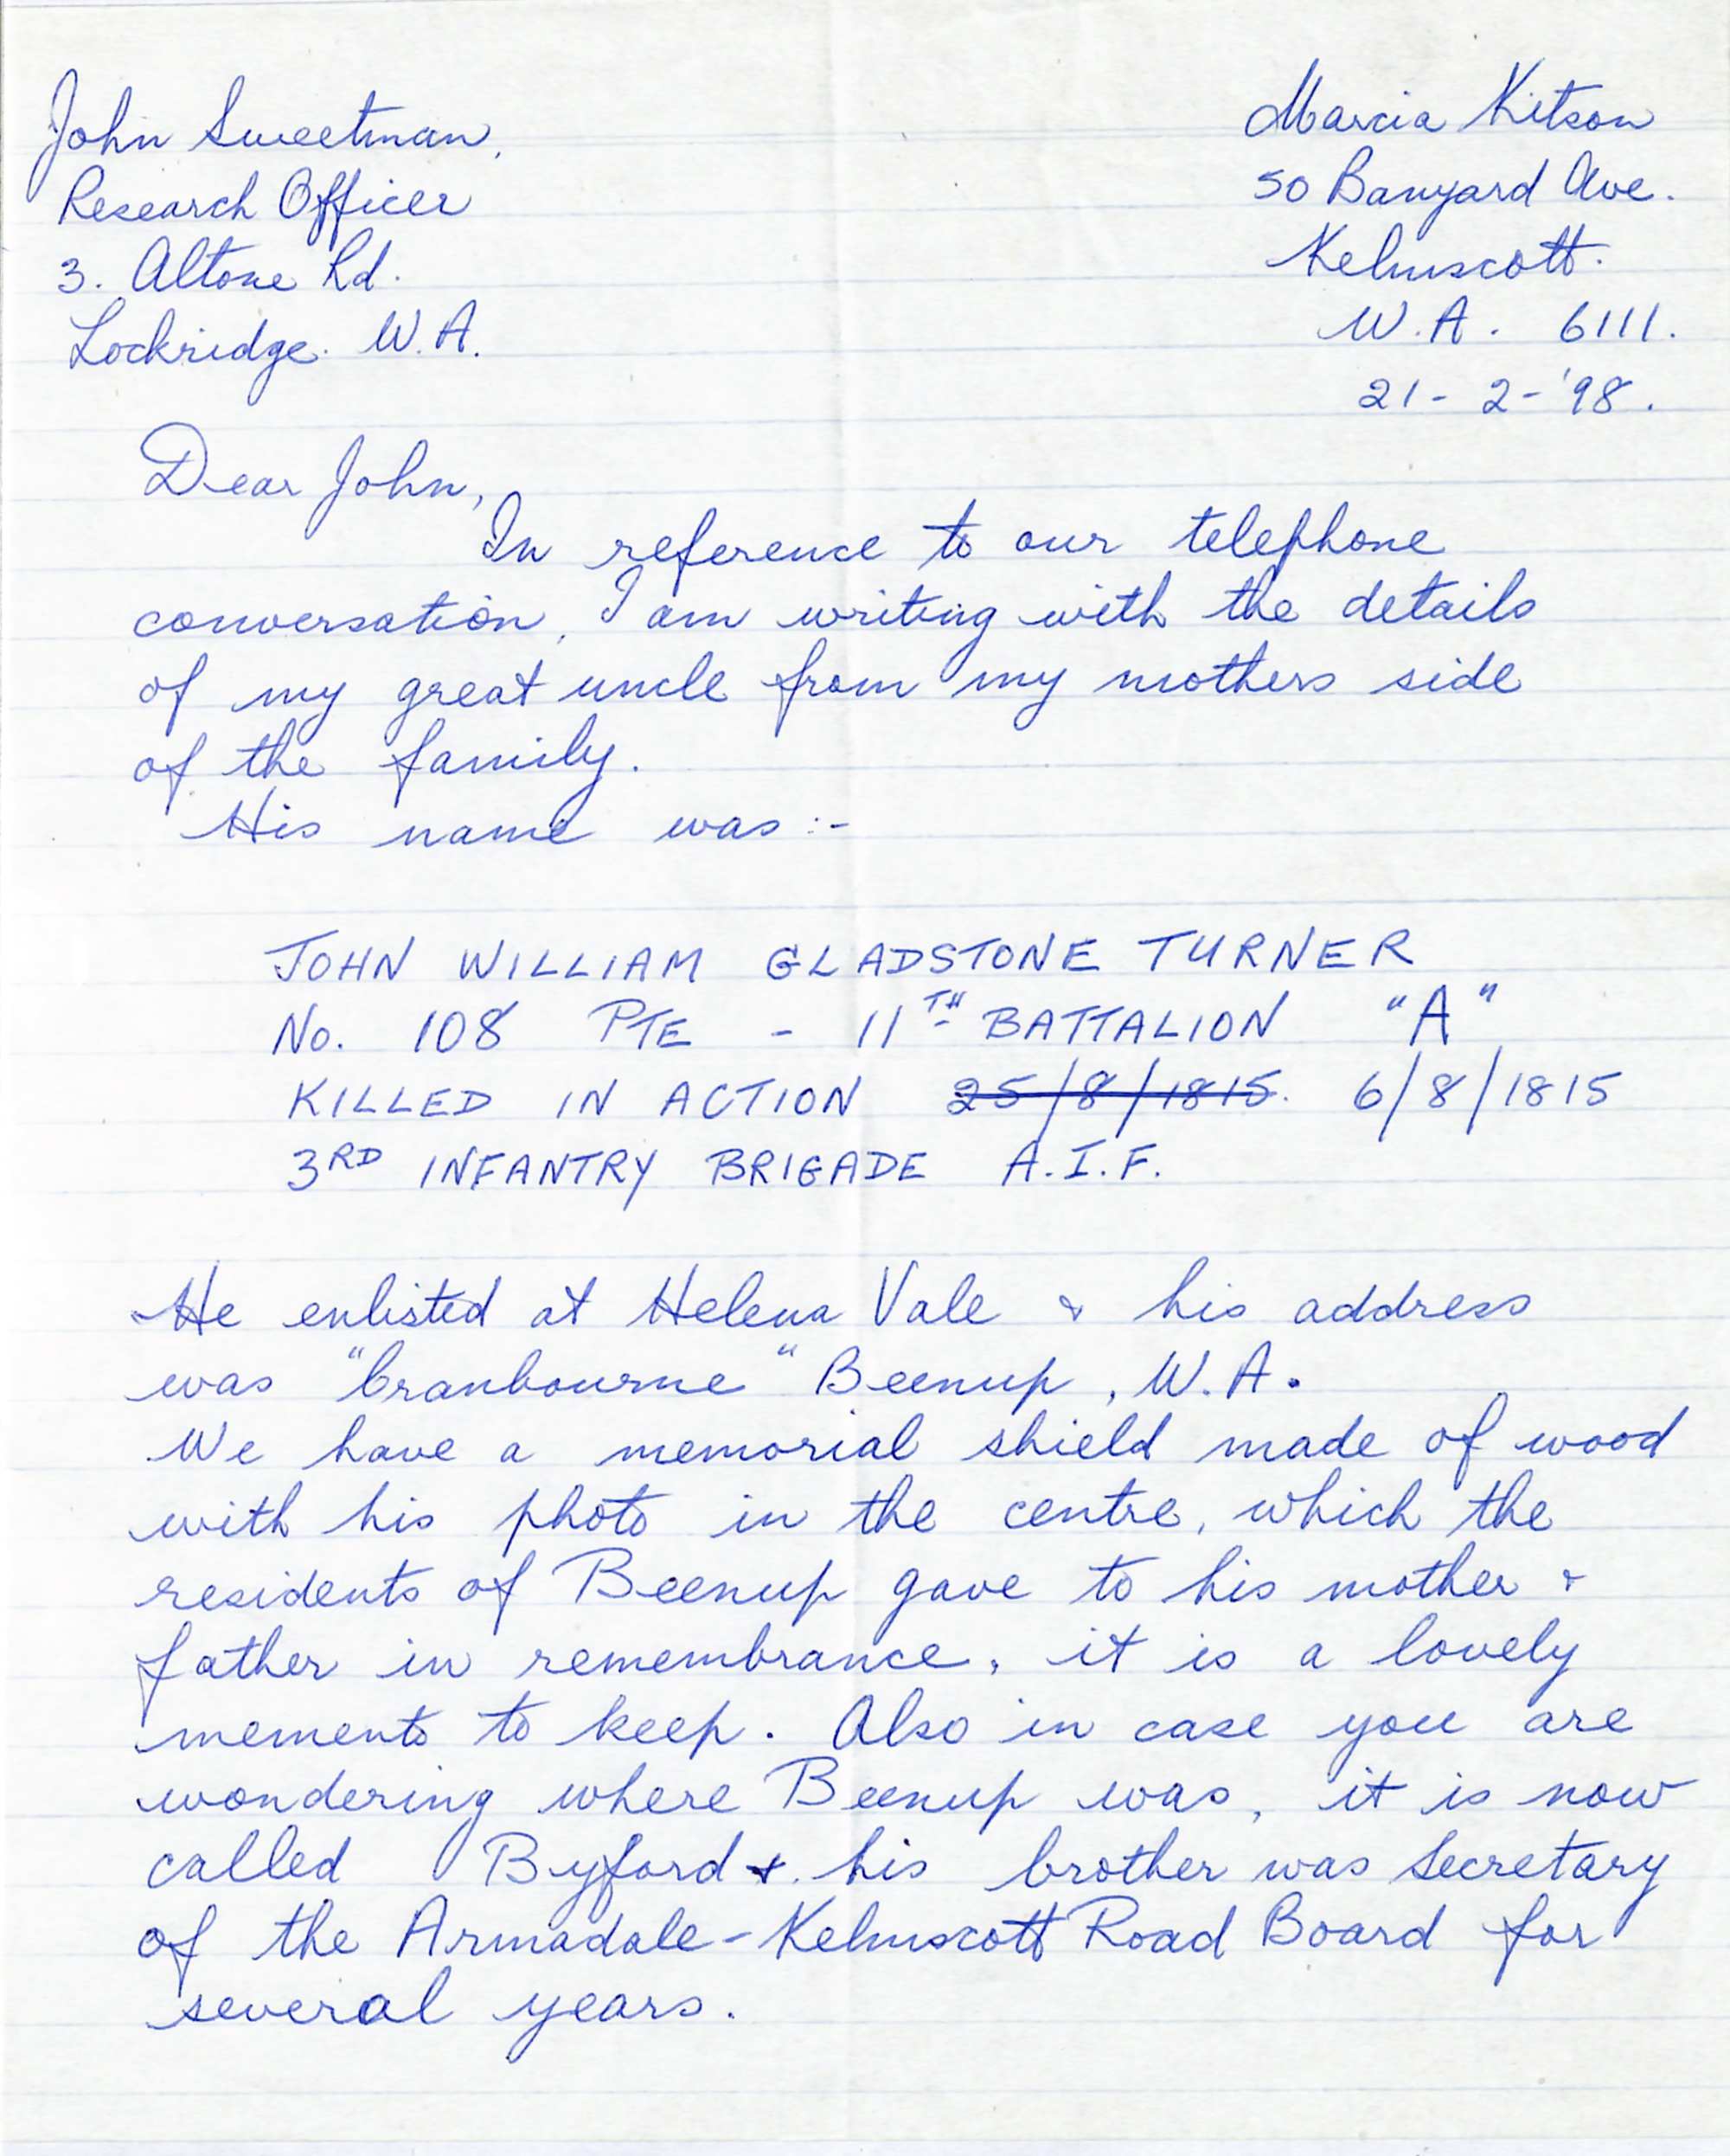 John Sweetman.
Research Officer
3. Altone Rd.
Lockridge. W.A.
Marcia Kitson
50 Banyard Ave.
Kelmscott.
W.A. 6111.
21-2-'98.
Dear John,
In reference to our telephone
conversation, I am writing with the details
of my great uncle from my mothers side
of the family.
His name was :-
JOHN WILLIAM GLADSTONE TURNER
No. 108 PTE - 11TH BATTALION "A"
KILLED IN ACTION 25/8/1815. 6/8/1815
3RD INFANTRY BRIGADE A.I.F.
He enlisted at Helena Vale & his address
was "Cranbourne" Beenup, W.A.
We have a memorial shield made of wood
with his photo in the centre, which the
residents of Beenup gave to his mother &
father in remembrance, it is a lovely
memento to keep. Also in case you are
wondering where Beenup was, it is now
called Byford & his brother was Secretary
of the Armadale-Kelmscott Road Board for
several years.